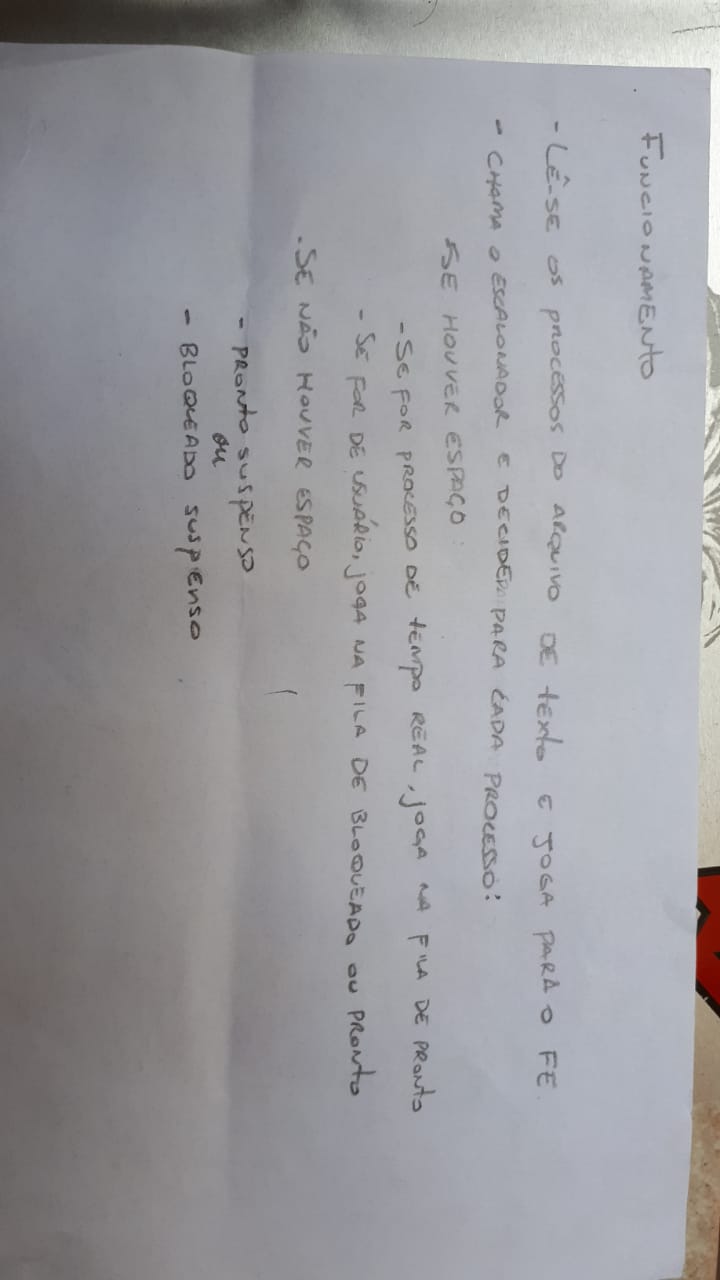 FUNCIONAMENTO
- LÊ-SE OS PROCESSOS DO ARQUIVO DE TEXTO E JOGA PARA O FE.
- CHAMA O ESCALONADOR E DECIDE PARA CADA PROCESSO:
SE HOUVER ESPAÇO:
- SE FOR PROCESSO DE TEMPO REAL, JOGA NA FILA DE PRONTO
- SE FOR DE USUÁRIO, JOGA NA FILA DE BLOQUEADO OU PRONTO
. SE NÃO HOUVER ESPAÇO
- PRONTO SUSPENSO
ou
- BLOQUEADO SUSPENSO